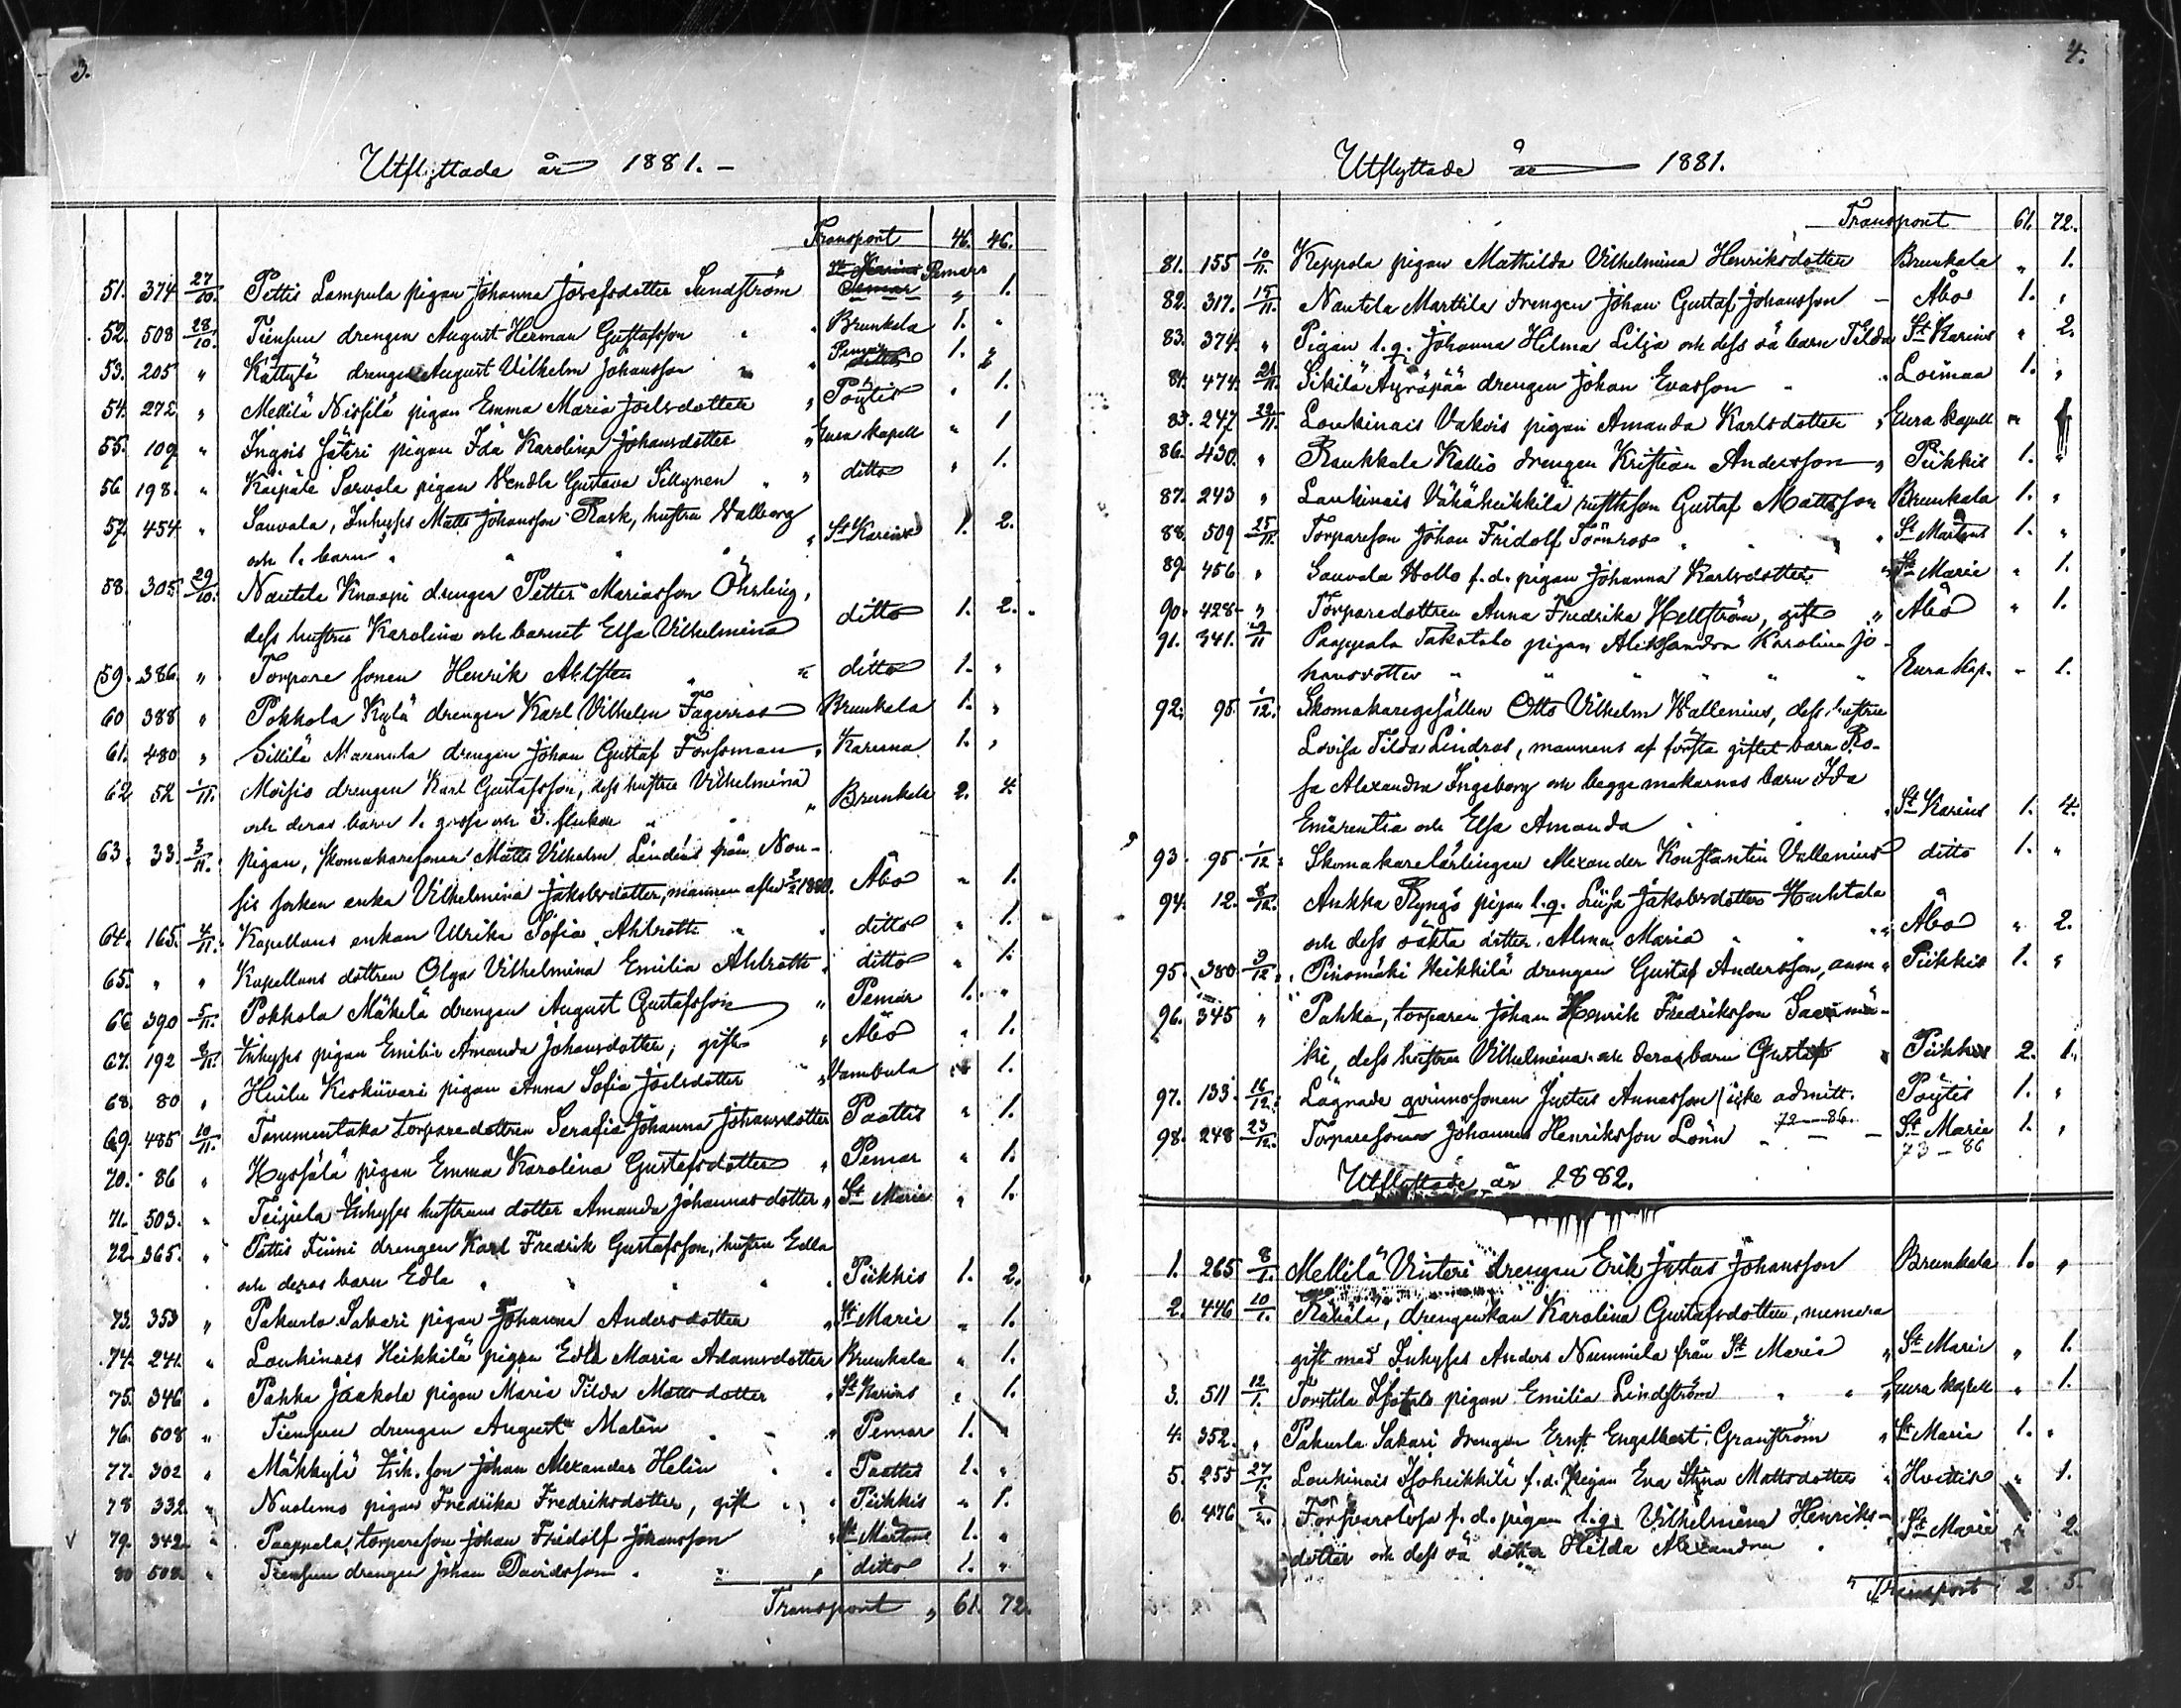 3.
Utflyttade år 1881. –
Transport 46. 46.
51. 374 27/10. Pettis Lampula pigan Johanna Josefsdotter Sundström Pemar „ 1.
52. 508 28/10. Tiensuu drengen August Herman Gustafsson „ Brunkala 1. „
53. 205 „ Kättylä drengen August Vilhelm Johansson „ Pemar 1. „
54. 272 „ Mellilä Nissilä pigan Emma Maria Joelsdotter „ Pöytis „ 1.
55. 109 „ Ingois Säteri pigan Ida Karolina Johansdotter „ Eura kapell „ 1
56 198. „ Sorvola pigan Vendla Gustava „ ditto „ 1.
57. 454 „ Sauvala, Inhyses Matts Johansson Rask, hustru Walborg
och 1. barn „ St Karins 1. 2.
58. 305. 29/10. Nautela Knaapi drengen Petter Mariasson Öhrling,
dess hustru Karolina och barnet Elsa Vilhelmina ditto 1. 2.
59. 386. „ Torpare sonen Henrik Ahlsten „ ditto 1. „
60 388 „ Pokkola Kylä drengen Karl Vilhelm Fagerros Brunkala 1. „
61. 480 „ Sikilä Mannula drengen Johan Gustaf Forssman „ Karuna 1. „
62 52 1/11. Moisio drengen Karl Gustafsson, dess hustru Vilhelmina
och deras barn 1. gosse och 3. flickor „ Brunkala 2. 4
63. 33. 3/11. pigan, skomakaresonen Matts Vilhelm Lindens från Nou-
sis socken enka Vilhelmina Jakobsdotter, mannen afled 1880. Åbo „ 1.
64. 165. 4/11. Kapellans enkan Ulrika Sofia Ahlroth „ ditto „ 1.
65. „ „ Kapellans dottren Olga Vilhelmina Emilia Ahlroth „ ditto „ 1.
66 390 5/11. Pokkola Mäkelä drengen August Gustafsson „ Pemar 1. „
67. 192 8/11. Inhyses pigan Emilia Amanda Johansdotter, gift „ Åbo „ 1.
68. 80 „ Huilu Keskiivari pigan Anna Sofia Joelsdotter „ Vambula „ 1.
69. 485 10/11. Tammentaka torparedottren Serafia Johanna Johansdotter Paattis „ 1.
70. 86 „ Hyssälä pigan Emma Karolina Gustafsdotter „ Pemar „ 1.
71. 503. „ Inhyses hustruns dotter Amanda Johannasdotter „ St Marie „ 1.
72. 365. „ Pettis Finni drengen Karl Fredrik Gustafsson, hustru Edla
och deras barn Edla „ „ „ „ Piikkis 1. 2.
73. 353 „ Pakurla Sakari pigan Johanna Andersdotter „ St Marie „ 1.
74. 241. „ Loukinais Heikkilä pigan Edla Maria Adamsdotter Brunkala „ 1.
75. 346 „ Pahka Jaakola pigan Maria Tilda Mattsdotter „ St Karins „ 1.
76. 508 „ Tiensuu drengen August Malén „ Pemar 1. „
77. 302 „ Mäkkylä Inh. son Johan Alexander Helin „ Paattis 1. „
78 332. „ Nuolemo pigan Fredrika Fredriksdotter, gift „ Piikkis „ 1.
79. 342. „ Paappala, torpareson Johan Fridolf Johansson „ St Mårtens 1. „
80 508. „ Tiensuu drengen Johan Davidsson „ ditto 1. „
Transport „ 61. 72.
4.
Utflyttade år 1881.
Transport 61. 72.
81. 155 10/11. Keppola pigan Mathilda Vilhelmina Henriksdotter Brunkala „ 1.
82. 317. 15/11. Nautela Marttila drengen Johan Gustaf Johansson – Åbo 1. „
83. 374. „ Pigan l. q. Johanna Helma Lilja och dess oä barn Tilda St Karins „ 2.
84. 474. 21/11. Sikilä Äyräpää drengen Johan Evasson „ Loimaa 1. „
85. 247 22/11. Loukinais Vakvis pigan Amanda Karlsdotter „ Eura kapell „ 1
86. 430. „ Raukkala Kallio drengen Kristian Andersson „ Piikkis 1. „
87. 243 „ Loukinais Vähäheikkilä Gustaf Mattsson Brunkala 1. „
88. 509 25/11. Torpareson Johan Fridolf Törnroos „ St Mårtens 1. „
89. 456 „ Sauvala Hollo f. d. pigan Johanna Karlsdotter „ St Marie „ 1.
90. 428 „ Torparedottren Anna Fredrika Hellström, gift „ Åbo „ 1.
91. 341. Paappala Takatalo pigan Aleksandra Karolina Jo-
hansdotter „ „ „ „ „ „ Eura kap. „ 1.
92. 95. 1/12. Skomakaregesällen Otto Vilhelm Wallenius, dess hustru
Lovisa Tilda Lindros, mannens af första giftet barn Ro-
sa Alexandra Ingeborg och begge makarnas barn Ida
Emerentia och Elsa Amanda „ St Karins 1. 4.
93. 95. 1/12. Skomakarelärlingen Alexander Konstantin Vallenius ditto 1. „
94. 12. 8/12. Ankka Ryngö pigan l. q. Liisa Jakobsdotter Huhtala
och dess oäkta dotter Alma Maria „ Åbo „ 2.
95. 380 9/12. Pinomäki Heikkilä drengen Gustaf Andersson, „ Piikkis 1. „
96. 345 „ Pahka, torparen Johan Henrik Fredriksson Saarimä-
ki, dess hustru Vilhelmina och deras barn Gustaf „ Piikkis 2. 1.
97. 133. 16/12. Lägrade qvinnosonen Justus Annasson / icke admitt. Pöytis 1. „
98. 248 23/12. Torparesonen Johannes Henriksson Lönn 72–86. – St Marie 1. „
73–86
Utflyttade år 1882.
1. 265 8/1. Mellilä Vinteri drengen Erik Justus Johansson Brunkala 1. „
2. 446 10/1. Rähälä, drengenkan Karolina Gustafsdotter, numera
gift med Inhyses Anders Nummila från St Marie „ St Marie „ 1.
3. 511 12/1. Torstila Isotalo pigan Emilia Lindström „ „ Eura kapell „ 1.
4. 352. „ Pakurla Sakari drengen Ernst Engelbert Granström „ St Marie 1. „
5. 255 27/1. Loukinais Isoheikkilä f. d. pigan Eva Stina Mattsdotter „ Hvittis „ 1.
6. 476 Försvarslösa f. d. pigan l. q. Vilhelmina Henriks-
dotter och dess oä dotter Hilda Alexandra „ St Marie „ 2.
Transport 2 5.